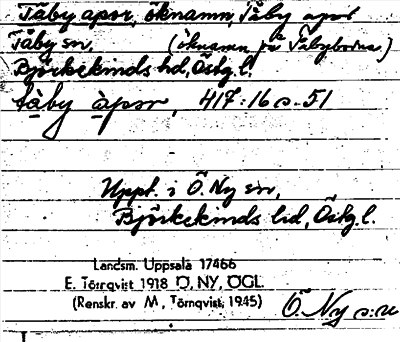 Tåby apor, öknamn, Tåby apor
Tåby sn, (öknamn på Tåbyborna)
Björkekinds hd, Östg. l.
tå̀by àpor, 417:16 s. 51
Uppt. i Ö. Ny sn,
Björkekinds hd, Östg. l.
Landsm. Uppsala 17466
E. Törnqvist 1918 Ö. NY, ÖGL.
(Renskr. av M. Törnqvist, 1945)
Ö. Ny s:n